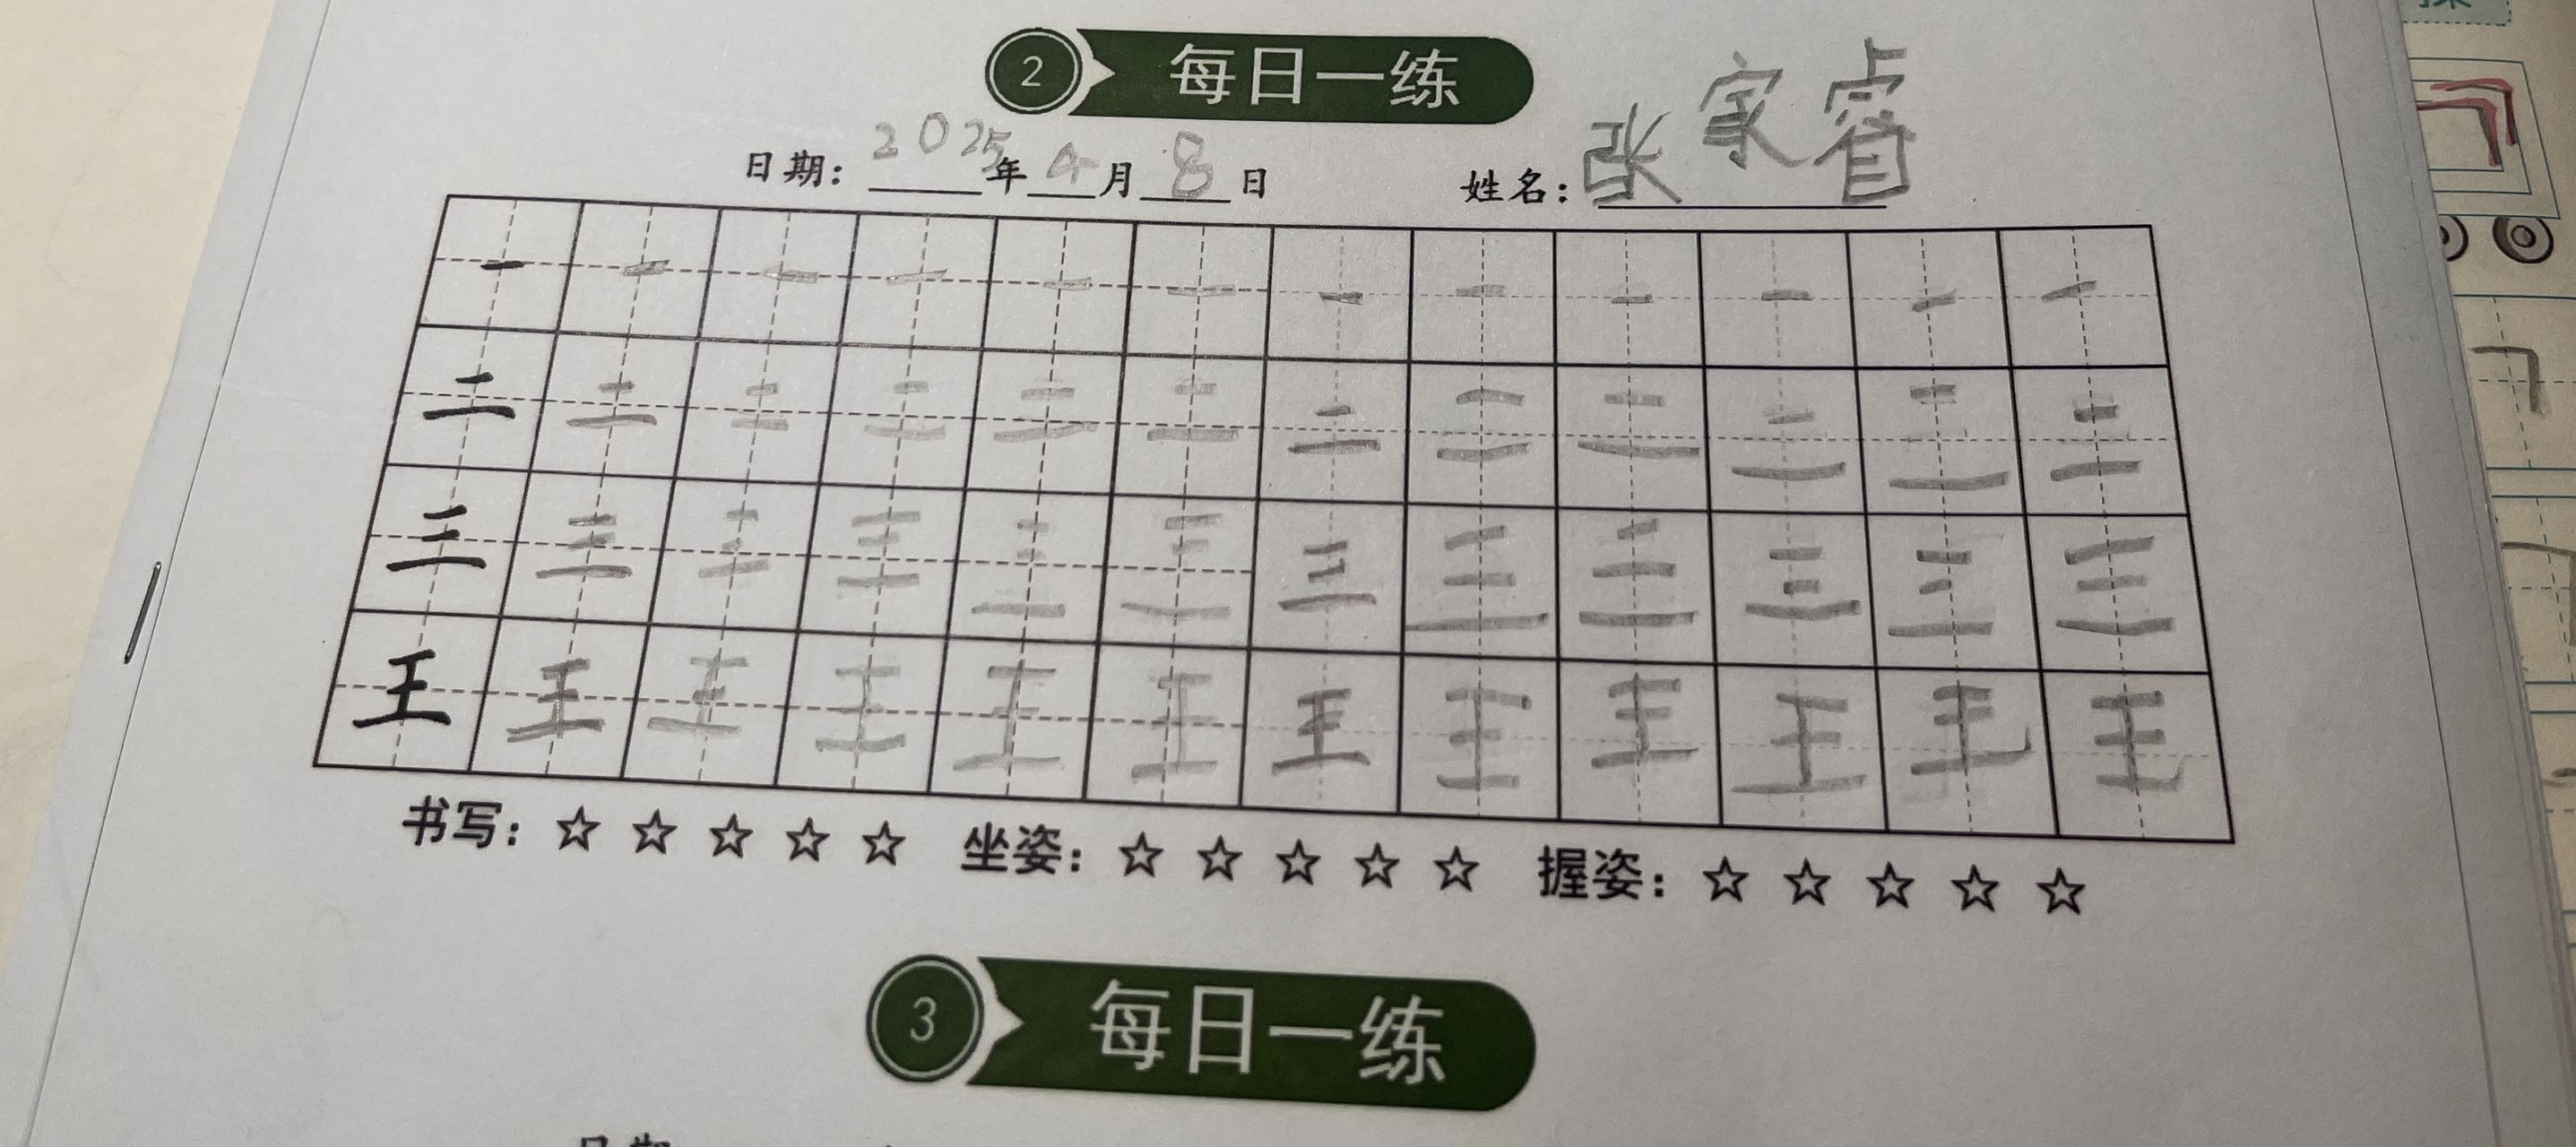 2 每日一练
日期：2025年4月8日 姓名：张家睿
一 一 一 一 一 一 一 一 一 一 一 一
二 二 二 二 二 二 二 二 二 二 二 二
三 三 三 三 三 三 三 三 三 三 三 三
王 王 王 王 王 王 王 王 王 王 王 王
书写：☆ ☆ ☆ ☆ ☆ 坐姿：☆ ☆ ☆ ☆ ☆ 握姿：☆ ☆ ☆ ☆ ☆
3 每日一练